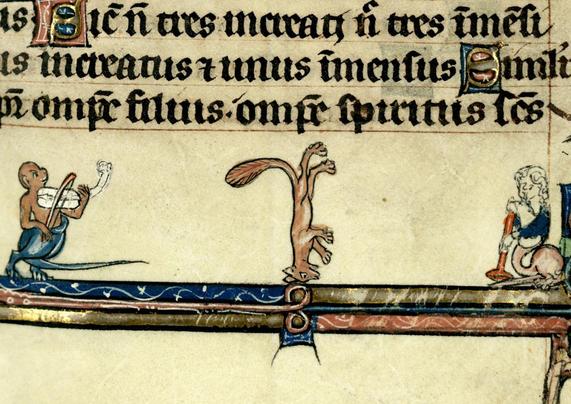 us Sic̄ n̄ tres increatꝫ n̄ tres īmēsi
us increatus ⁊ unus īmensus Simili
pr̄ omp̄s filius · omp̄s spiritus sc̄s